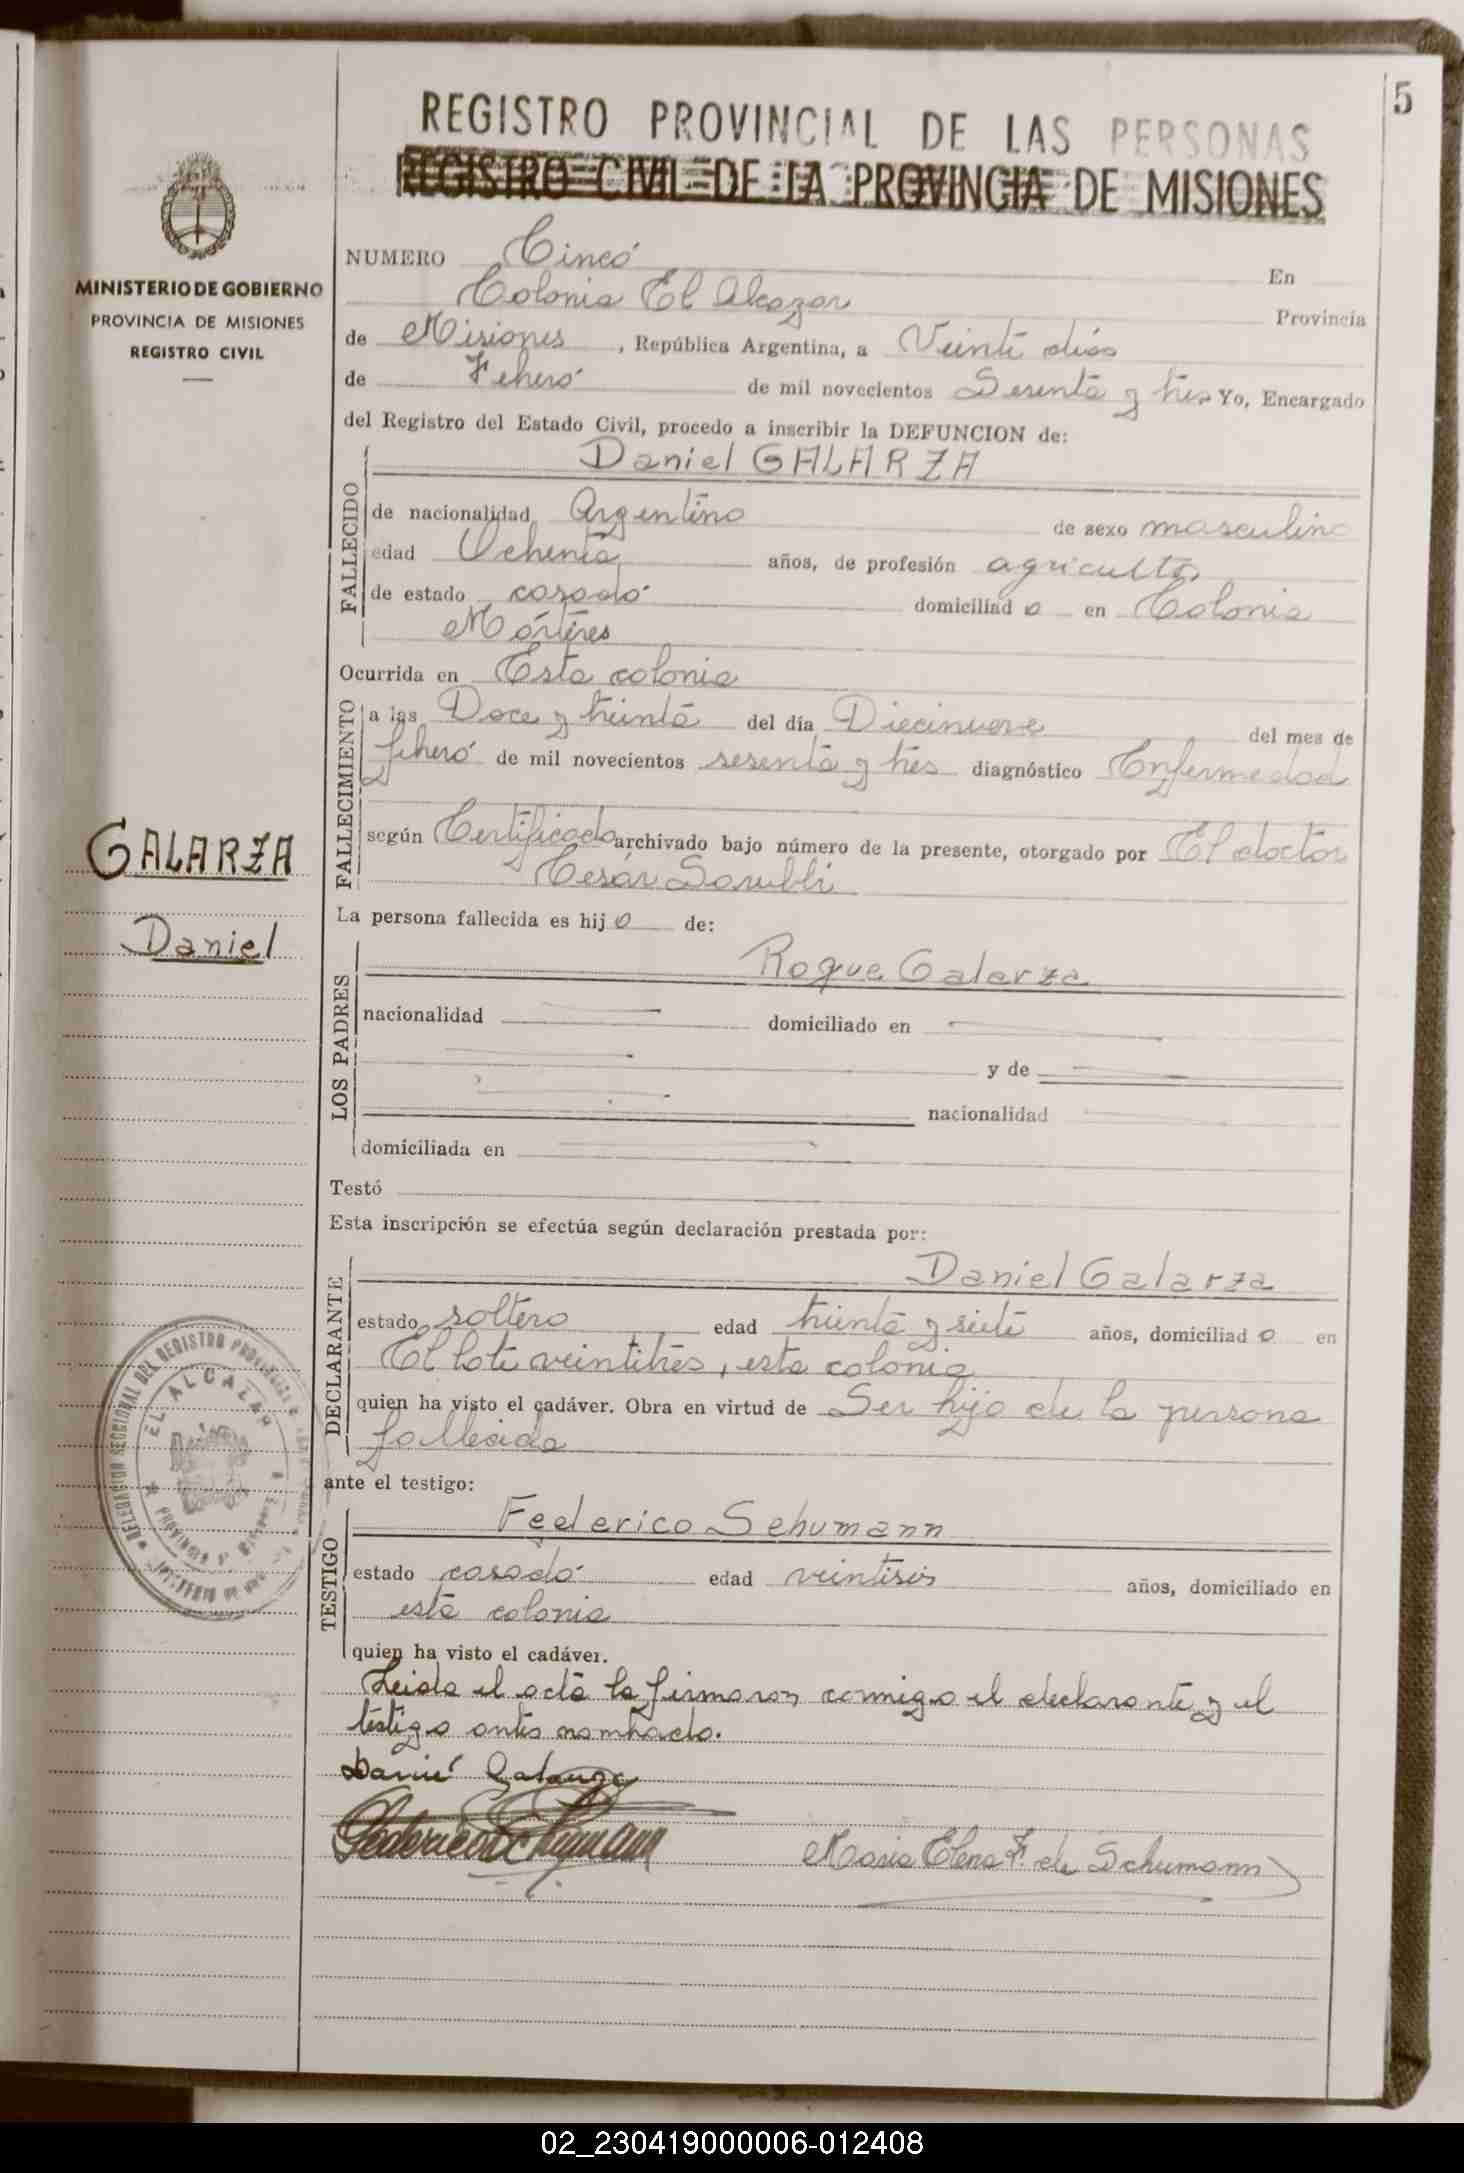 5
REGISTRO PROVINCIAL DE LAS PERSONAS
REGISTRO CIVIL DE LA PROVINCIA DE MISIONES
MINISTERIO DE GOBIERNO
PROVINCIA DE MISIONES
REGISTRO CIVIL
NUMERO Cinco En
Colonia El Alcazar Provincia
de Misiones, República Argentina, a Veinte dias
de Febero de mil novecientos Sesenta y tres Yo, Encargado
del Registro del Estado Civil, procedo a inscribir la DEFUNCION de:
FALLECIDO
Daniel GALARZA
de nacionalidad Argentino de sexo masculino
edad Ochenta años, de profesión agricultor
de estado casado domiciliado en Colonia
Mártires
Ocurrida en Esta colonia
FALLECIMIENTO
a las Doce y treinta del día Diecinueve del mes de
febero de mil novecientos sesenta y tres diagnóstico Enfermedad
según Certificado archivado bajo número de la presente, otorgado por El doctor
César
La persona fallecida es hijo de:
LOS PADRES
Roque Galarza
nacionalidad domiciliado en
y de
nacionalidad
domiciliada en
Testó
Esta inscripción se efectúa según declaración prestada por:
DECLARANTE
Daniel Galarza
estado soltero edad treinta y siete años, domiciliado en
El lote veintitres, esta colonia
quien ha visto el cadáver. Obra en virtud de Ser hijo de la persona
fallecida
ante el testigo:
TESTIGO
Federico Schumann
estado casado edad veintiseis años, domiciliado en
esta colonia
quien ha visto el cadáver.
Leida el acta la firmaron conmigo el declarante y el
testigo antes nombrado.
Daniel Galarza
Federico Schumann
Maria Elena F. de Schumann
GALARZA
Daniel
DELEGACION SECCIONAL DEL REGISTRO PROVINCIAL
EL ALCAZAR
PROVINCIA
02_230419000006-012408